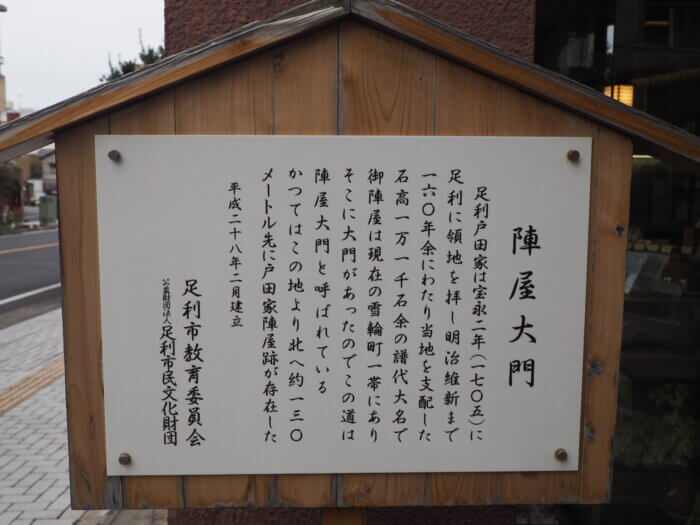 陣屋大門
足利戸田家は宝永二年(一七〇五)に
足利に領地を拝し明治維新まで
一六〇年余にわたり当地を支配した
石高一万一千石余の譜代大名で
御陣屋は現在の雪輪町一帯にあり
そこに大門があったのでこの道は
陣屋大門と呼ばれている
かつてはこの地より北へ約一三〇
メートル先に戸田家陣屋跡が存在した
平成二十八年二月建立
足利市教育委員会
公益財団法人足利市民文化財団